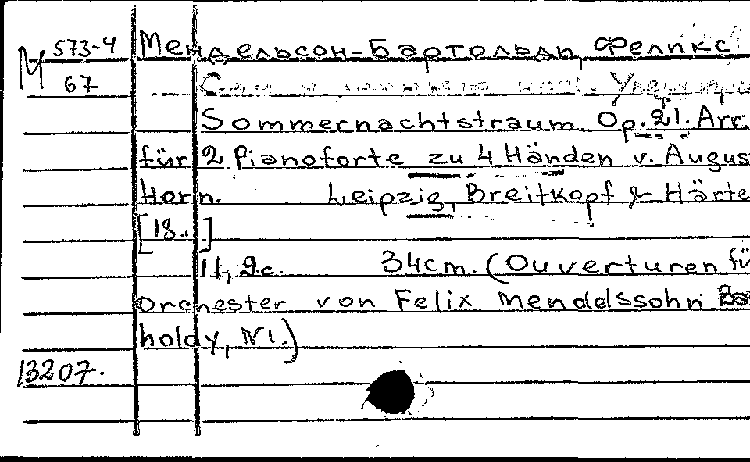 М 573-4
67
Мендельсон-Бартольди, Феликс
Sommernachtstraum. Op. 21. Arr
für 2 Pianoforte zu 4 Händen v. Augus
Horn. Leipzig, Breitkopf & Härte
[18..]
11, 9c. 34cm. (Ouverturen fü
Orchester von Felix Mendelssohn Bar
holdy, N1.)
13207.